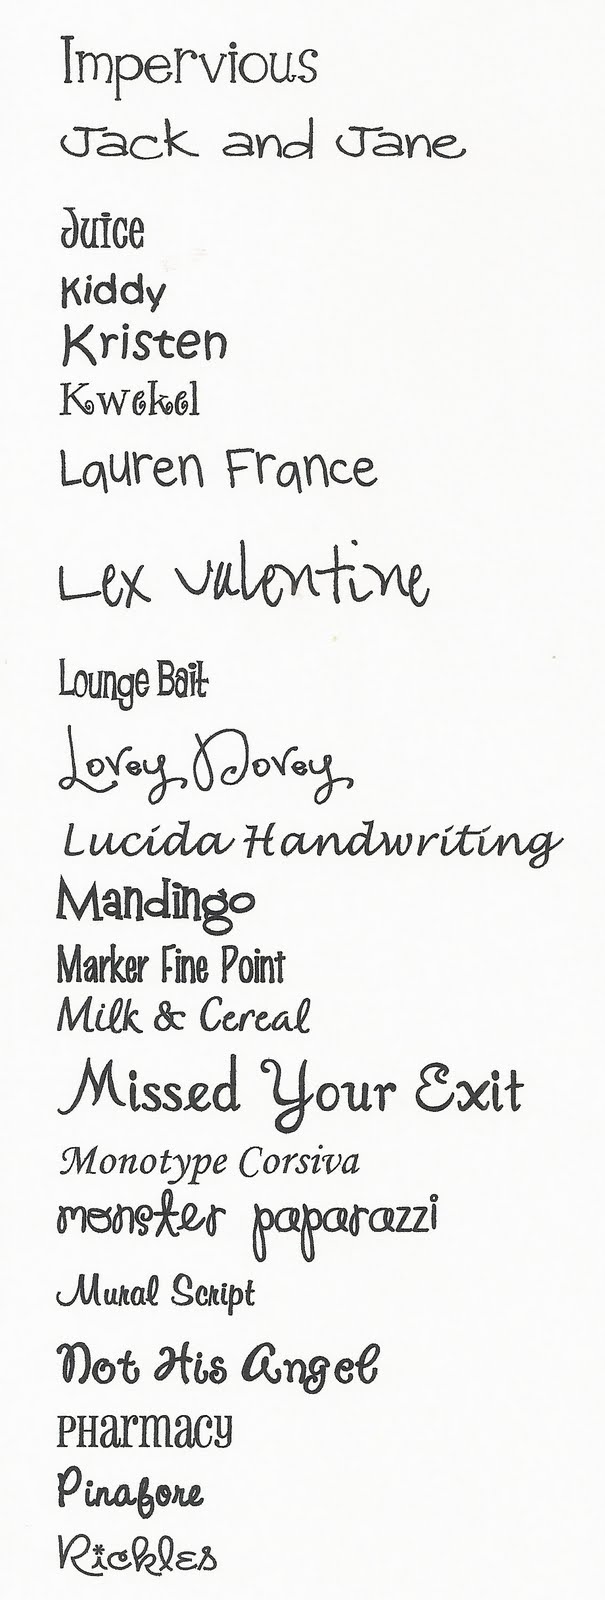 Impervious
Jack and Jane
Juice
Kiddy
Kristen
Kwekel
Lauren France
Lex Valentine
Lounge Bait
Lovey Dovey
Lucida Handwriting
Mandingo
Marker Fine Point
Milk & Cereal
Missed Your Exit
Monotype Corsiva
monster paparazzi
Mural Script
Not His Angel
PHarmacy
Pinafore
Rickles